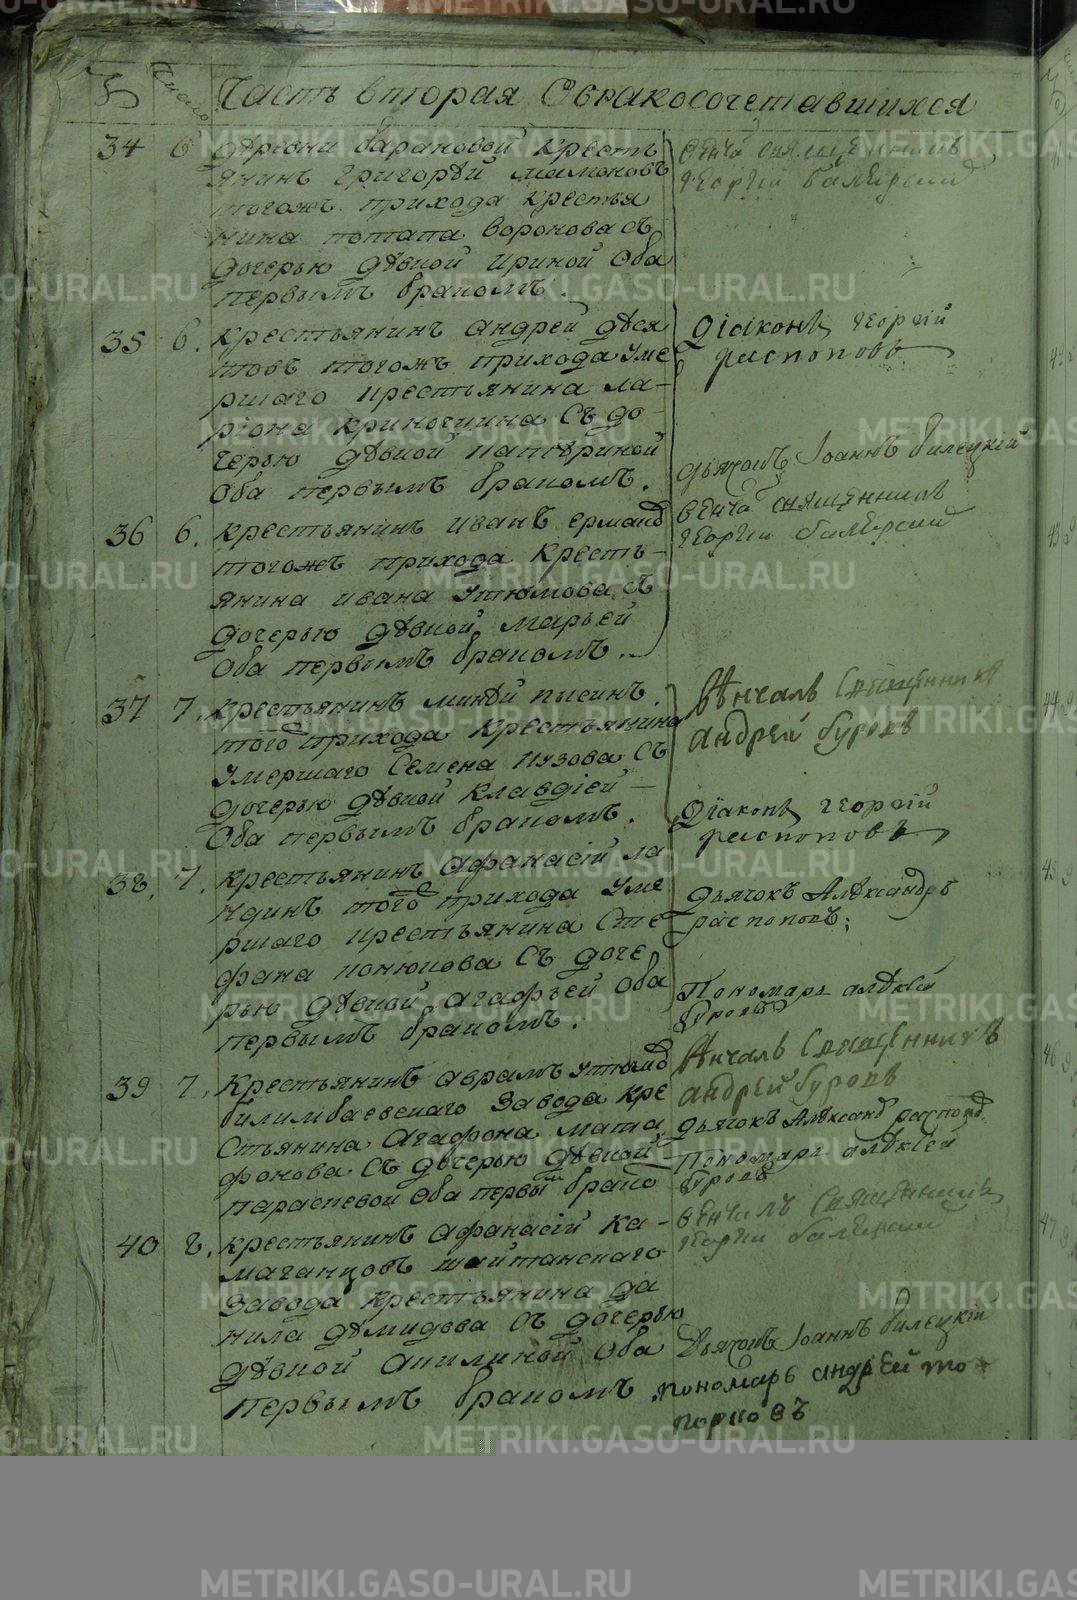 Число
Часть вторая О бракосочетавшихся
34 6 деревни барановой кресть
янинъ григорѣй мамоновъ
тогожъ прихода крестья
нина потапа воронова съ
дочерью дѣвкой ириной оба
первымъ бракомъ.
венча священникъ
георгий
35 6. крестьянинъ андрей деся
товъ тогожъ прихода уме
ршаго крестьянина ла-
рiона кривошина съ до-
черью дѣвкой катериной
оба первымъ бракомъ.
Дiаконъ георгiй
распоповъ
дьячокъ Iоаннъ билецкiй
36 6. крестьянинъ иванъ
тогожъ прихода кресть-
янина ивана утюмова съ
дочерью дѣвкой марьей
оба первымъ бракомъ.
венча священникъ
георгий
37 7. крестьянинъ
того прихода крестьянина
умершаго семена пузова съ
дочерью дѣвкой клавдiей
оба первымъ бракомъ.
вѣнчалъ священникъ
андрей буровъ
Дiаконъ георгiй
распоповъ
38. 7. крестьянинъ афанасiй ла
того прихода уме
ршаго крестьянина сте
фана конюкова съ доче
рью дѣвкой агафьей оба
первымъ бракомъ.
дьячокъ Алѣксандръ
распоповъ;
Пономарь алѣксей
буровъ
39 7. крестьянинъ аврамъ
билимбаевскаго завода кре
стьянина агафона мата
фонова съ дочерью дѣвкой
параскевой оба первы брако
вѣнчалъ священникъ
андрей буровъ
дьячокъ Алѣксанд распоп.
Пономарь алѣксей
буровъ
40 8. крестьянинъ афанасiй ка-
маганцовъ шайтанскаго
завода крестьянина да
нила дѣмидова съ дочерью
дѣвкой акилиной оба
первымъ бракомъ
венчалъ священникъ
георгий
Дьячокъ Iоаннъ билецкiй
пономарь андрей то
порковъ
METRIKI.GASO-URAL.RU